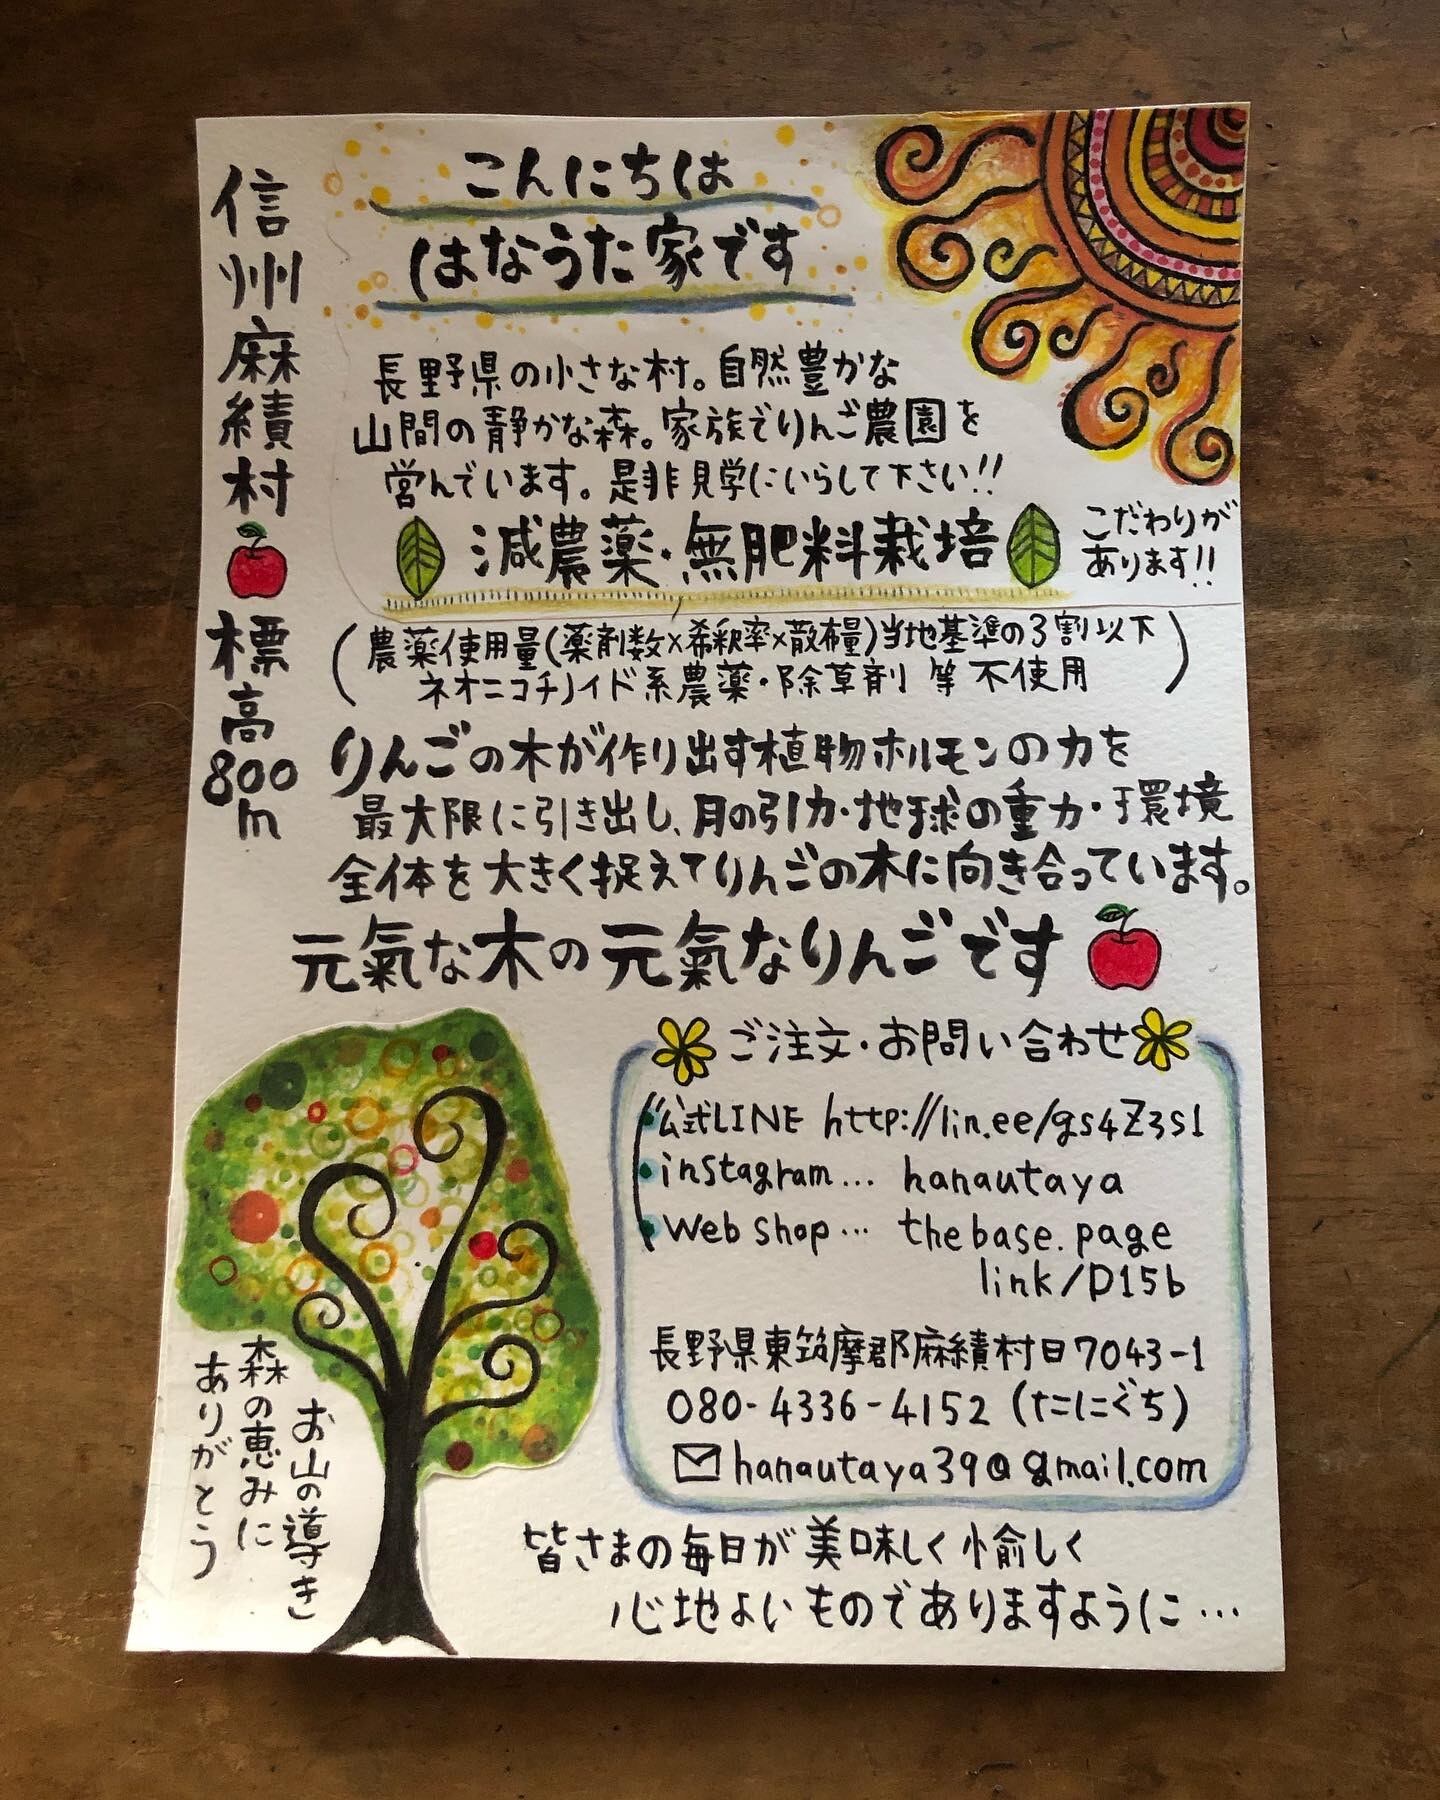 こんにちは
はなうた家です
信州麻績村
標高800m
長野県の小さな村。自然豊かな
山間の静かな森。家族でりんご農園を
営んでいます。是非見学にいらして下さい!!
減農薬・無肥料栽培
こだわりが
あります!!
(農薬使用量(薬剤数×希釈率×散布量)当地基準の3割以下
ネオニコチノイド系農薬・除草剤 等 不使用)
りんごの木が作り出す植物ホルモンの力を
最大限に引き出し、月の引力・地球の重力・環境
全体を大きく捉えてりんごの木に向き合っています。
元氣な木の元氣なりんごです
ご注文・お問い合わせ
公式LINE http://lin.ee/gs4Z3s1
instagram... hanautaya
Web shop... thebase.page
link/D15b
長野県東筑摩郡麻績村日7043-1
080-4336-4152 (たにぐち)
hanautaya39@gmail.com
お山の導き
森の恵みに
ありがとう
皆さまの毎日が美味しく愉しく
心地よいものでありますように...